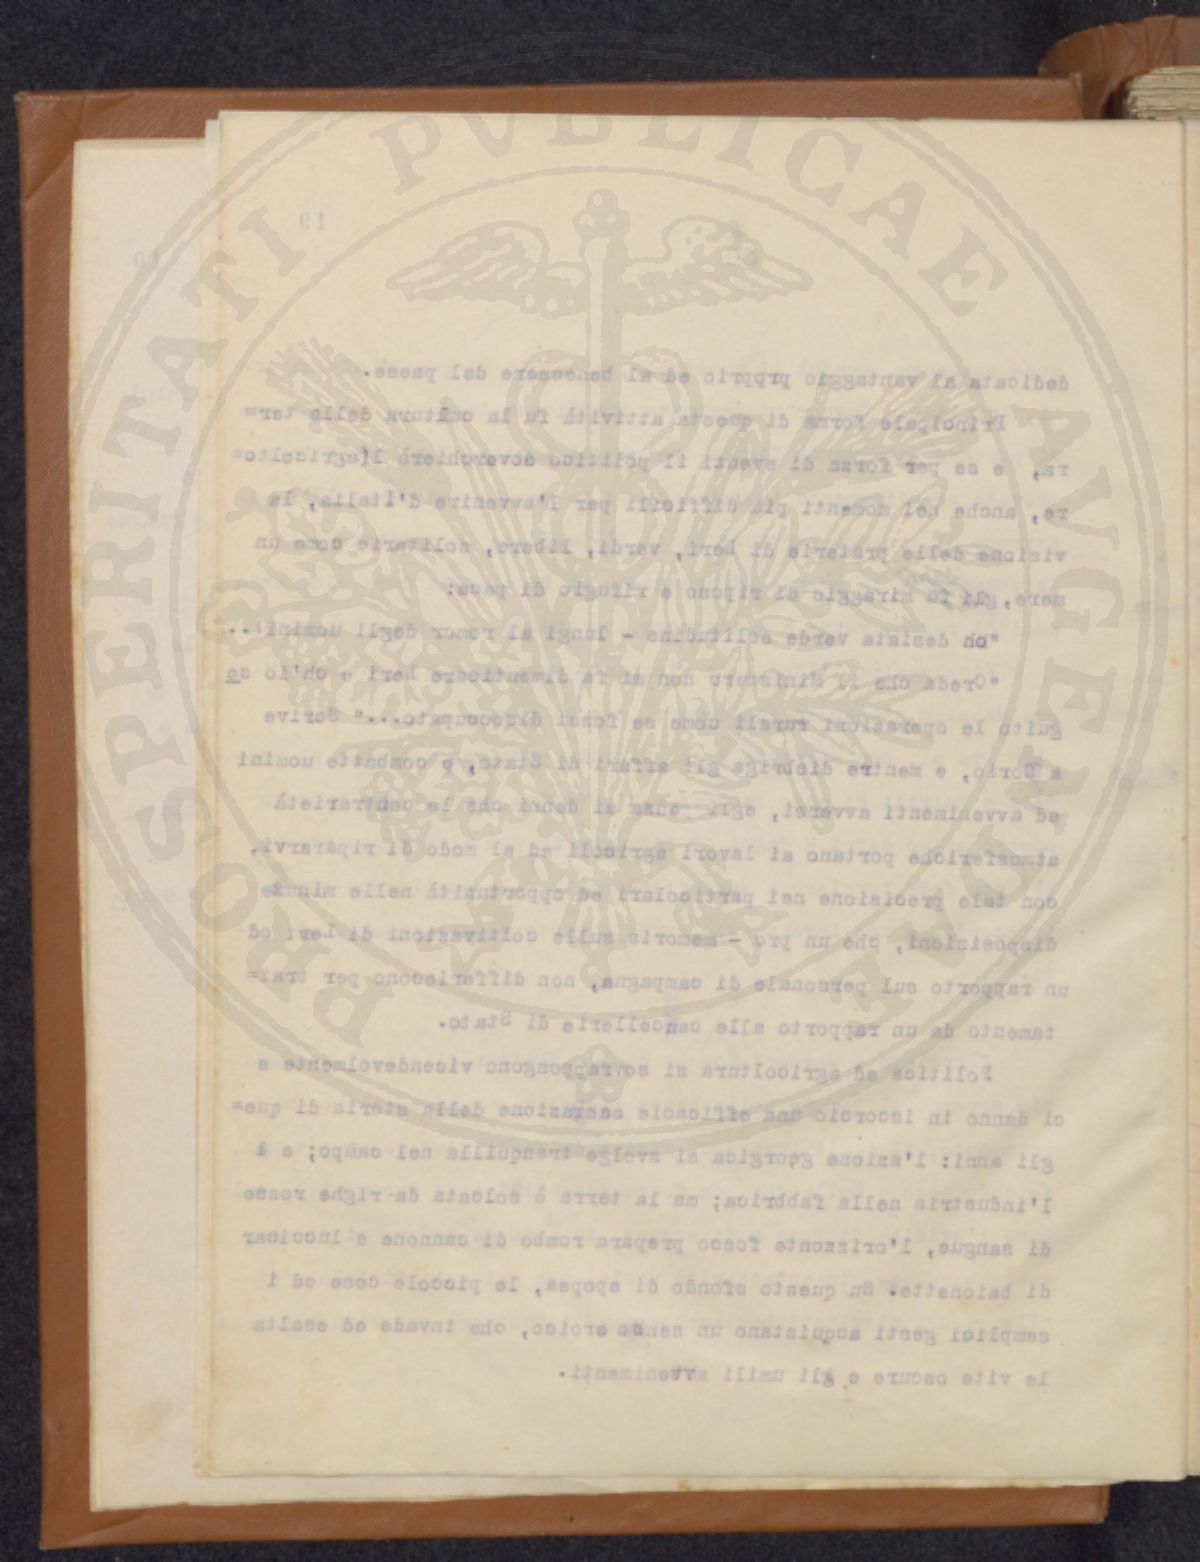 19
dedicata al vantaggio prpprio ed al benessere del paese.
Principale forma di questa attività fu la cultura della ter=
ra, e se per forza di eventi il politico soverchierà l'agricolto=
re, anche nei momenti più difficili per l'avvenire d'Italia, la
visione delle praterie di Leri, verdi, libere, solitarie come un
mare, gli fu miraggio di riposo e rifugio di pace:
"oh desiata verde solitudine - lungi al romor degli uomini!..
"Creda che il Ministero non mi fa dimenticare Leri e ch'io se
guito le operazioni rurali come se fossi disoccupato..." Scrive
a Corio, e mentre disbriga gli affari di Stato, e combatte uomini
ed avvenimenti avversi, egli pensa ai danni che le contrarietà
atmosferiche portano ai lavori agricoli ed al modo di ripararvi,
con tale precisione nei particolari ed opportunità nelle minute
disposizioni, che un pro - memoria sulle coltivazioni di Leri od
un rapporto sul personale di campagna, non differiscono per trat=
tamento da un rapporto alle cancellerie di Stato.
Politica ed agricoltura si sovrappongono vicendevolmente e
ci danno in iscorcio una efficacie sensazione della storia di que=
gli anni: l'azione georgica si svolge tranquilla nel campo; e è
l'industria nella fabbrica; ma la terra è solcata da righe rosse
di sangue, l'orizzonte fosco prepara rombo di cannone e luccicar
di baionette. Su questo sfondo di epopea, le piccole cose ed i
semplici gesti acquistano un senso eroico, che invade ed esalta
le vite oscure e gli umili avvenimenti.
PROSPERITATI PVBLICAE AVGENDAE